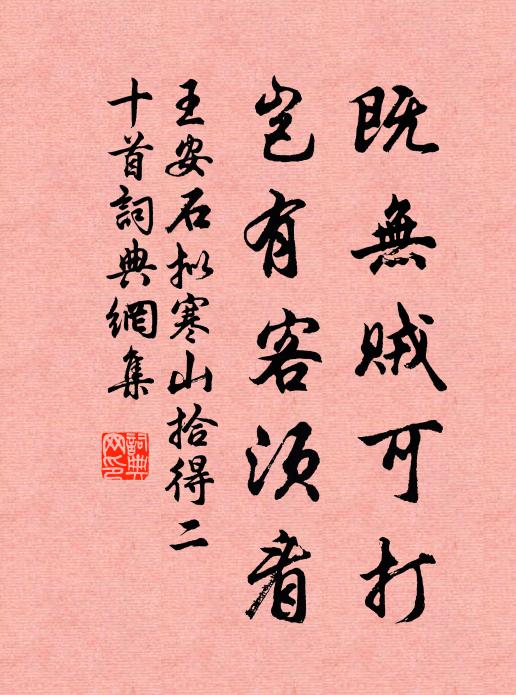 既無賊可打
豈有客須看
王安石拟寒山拾得二
十首詞典網集
詞典
网印